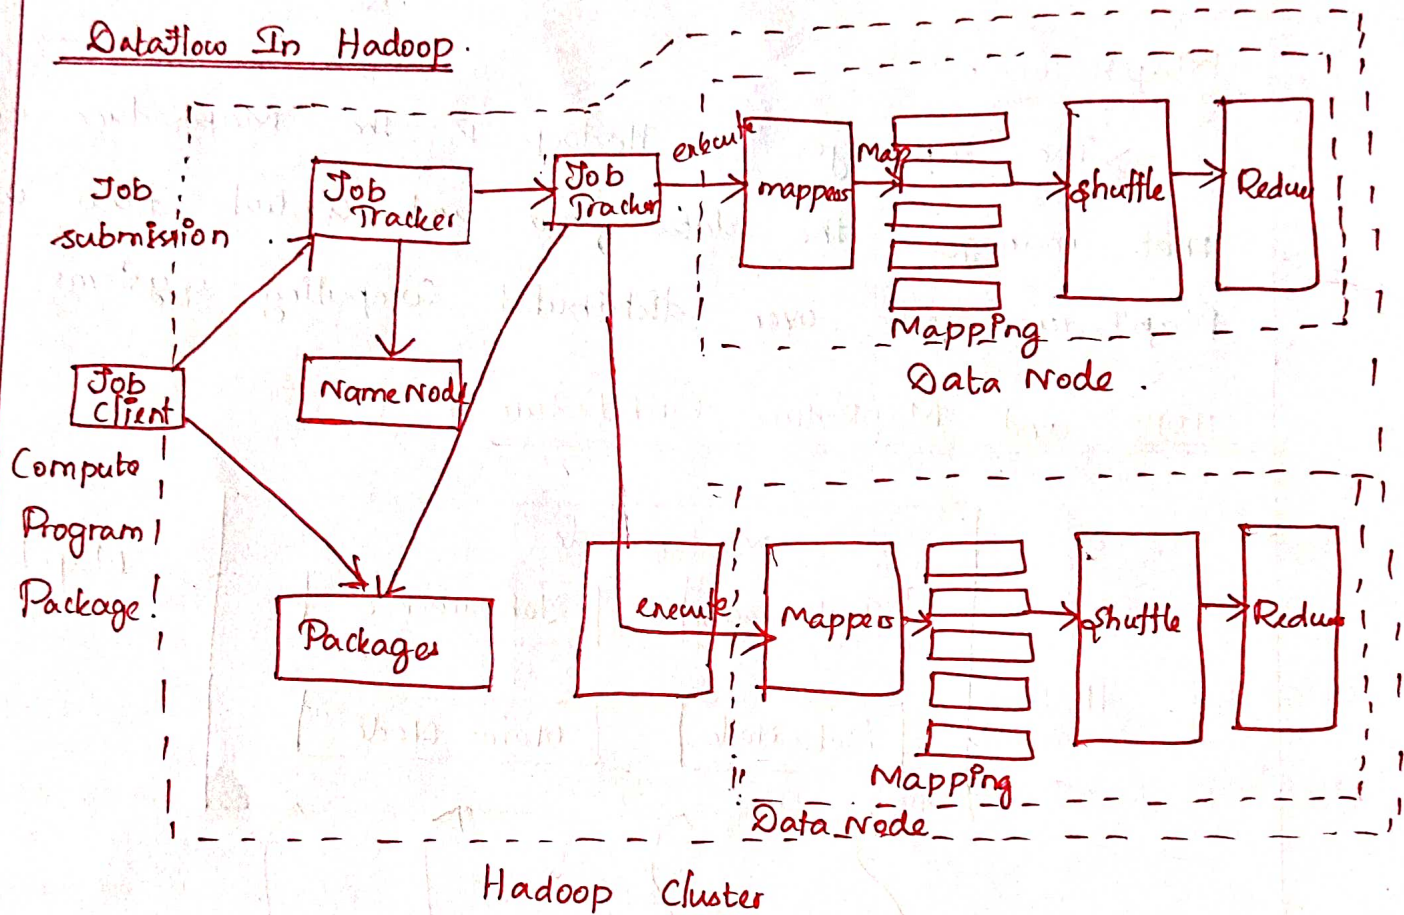 Dataflow In Hadoop.
Job
submission
Job
Tracker
Job
Tracker.
execute
mappers
Map.
Shuffle
Reduce
Mapping
Data Node.
Job
Client
NameNode
Compute
Program
Package
Packages
execute
Mappers
Shuffle
Reduce
Mapping
Data Node
Hadoop Cluster